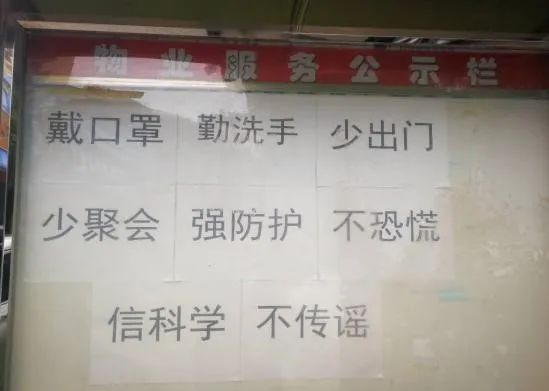 物业服务公示栏
戴口罩 勤洗手 少出门
少聚会 强防护 不恐慌
信科学 不传谣